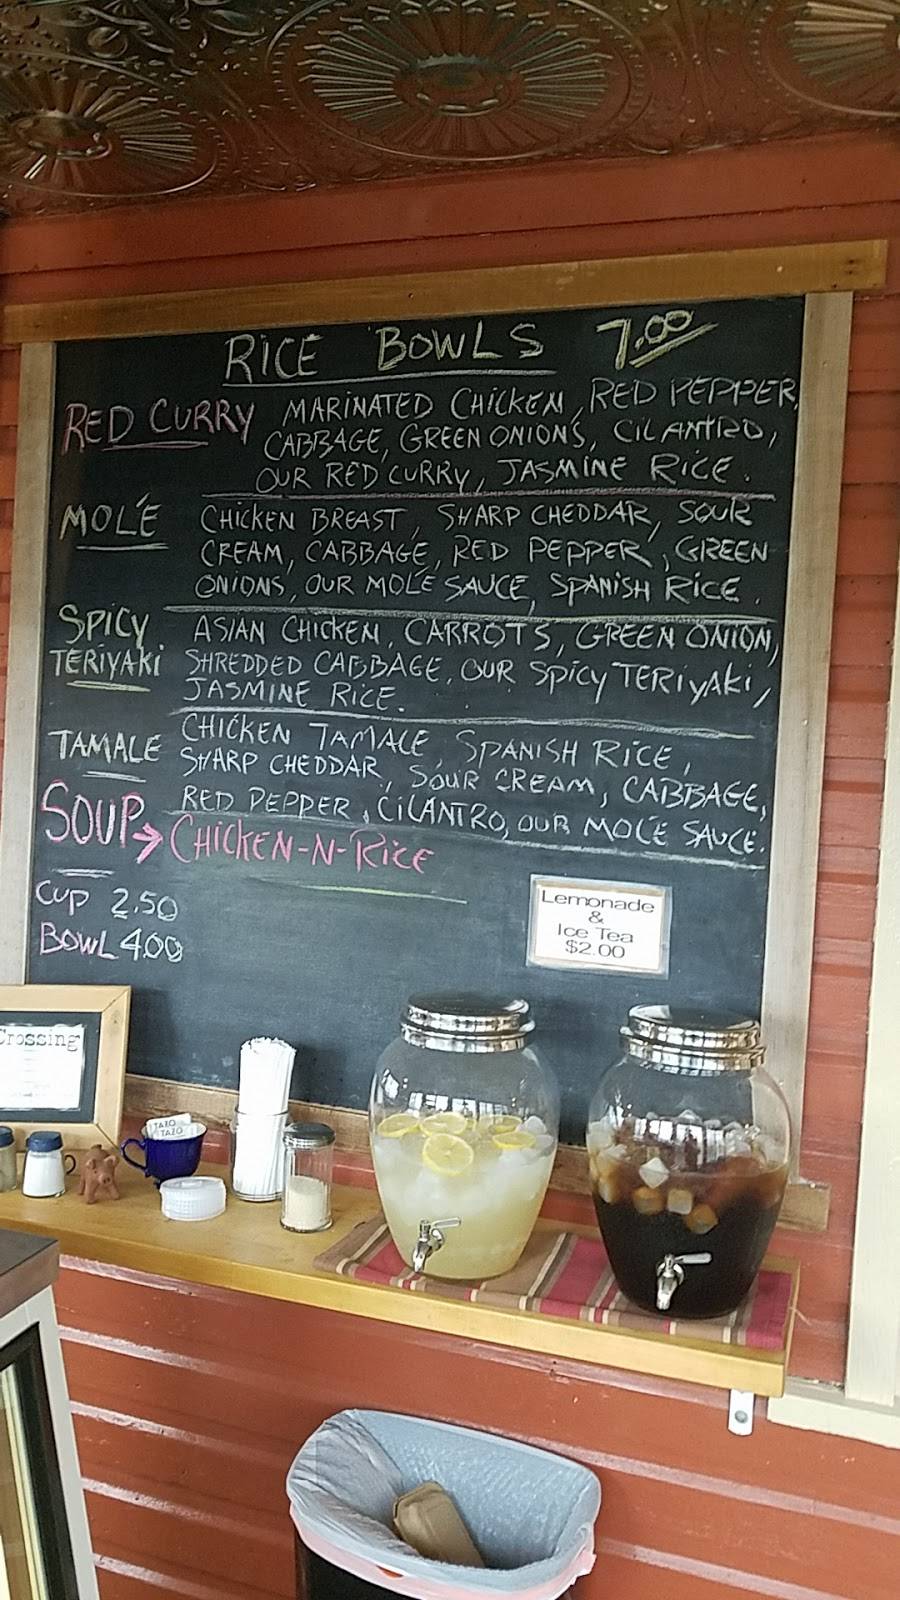 RICE BOWLS 7.00
RED CURRY MARINATED CHICKEN, RED PEPPER,
CABBAGE, GREEN ONIONS, CILANTRO,
OUR RED CURRY, JASMINE RICE.
MOLÉ CHICKEN BREAST, SHARP CHEDDAR, SOUR
CREAM, CABBAGE, RED PEPPER, GREEN
ONIONS, OUR MOLÉ SAUCE, SPANISH RICE.
SPICY TERIYAKI ASIAN CHICKEN, CARROTS, GREEN ONION,
SHREDDED CABBAGE, OUR SPICY TERIYAKI,
JASMINE RICE.
TAMALE CHICKEN TAMALE, SPANISH RICE,
SHARP CHEDDAR, SOUR CREAM, CABBAGE,
RED PEPPER, CILANTRO, OUR MOLÉ SAUCE.
SOUP→ CHICKEN-N-RICE
CUP 2.50
BOWL 4.00
Lemonade
&
Ice Tea
$2.00
Crossing
TAZO
TAZO